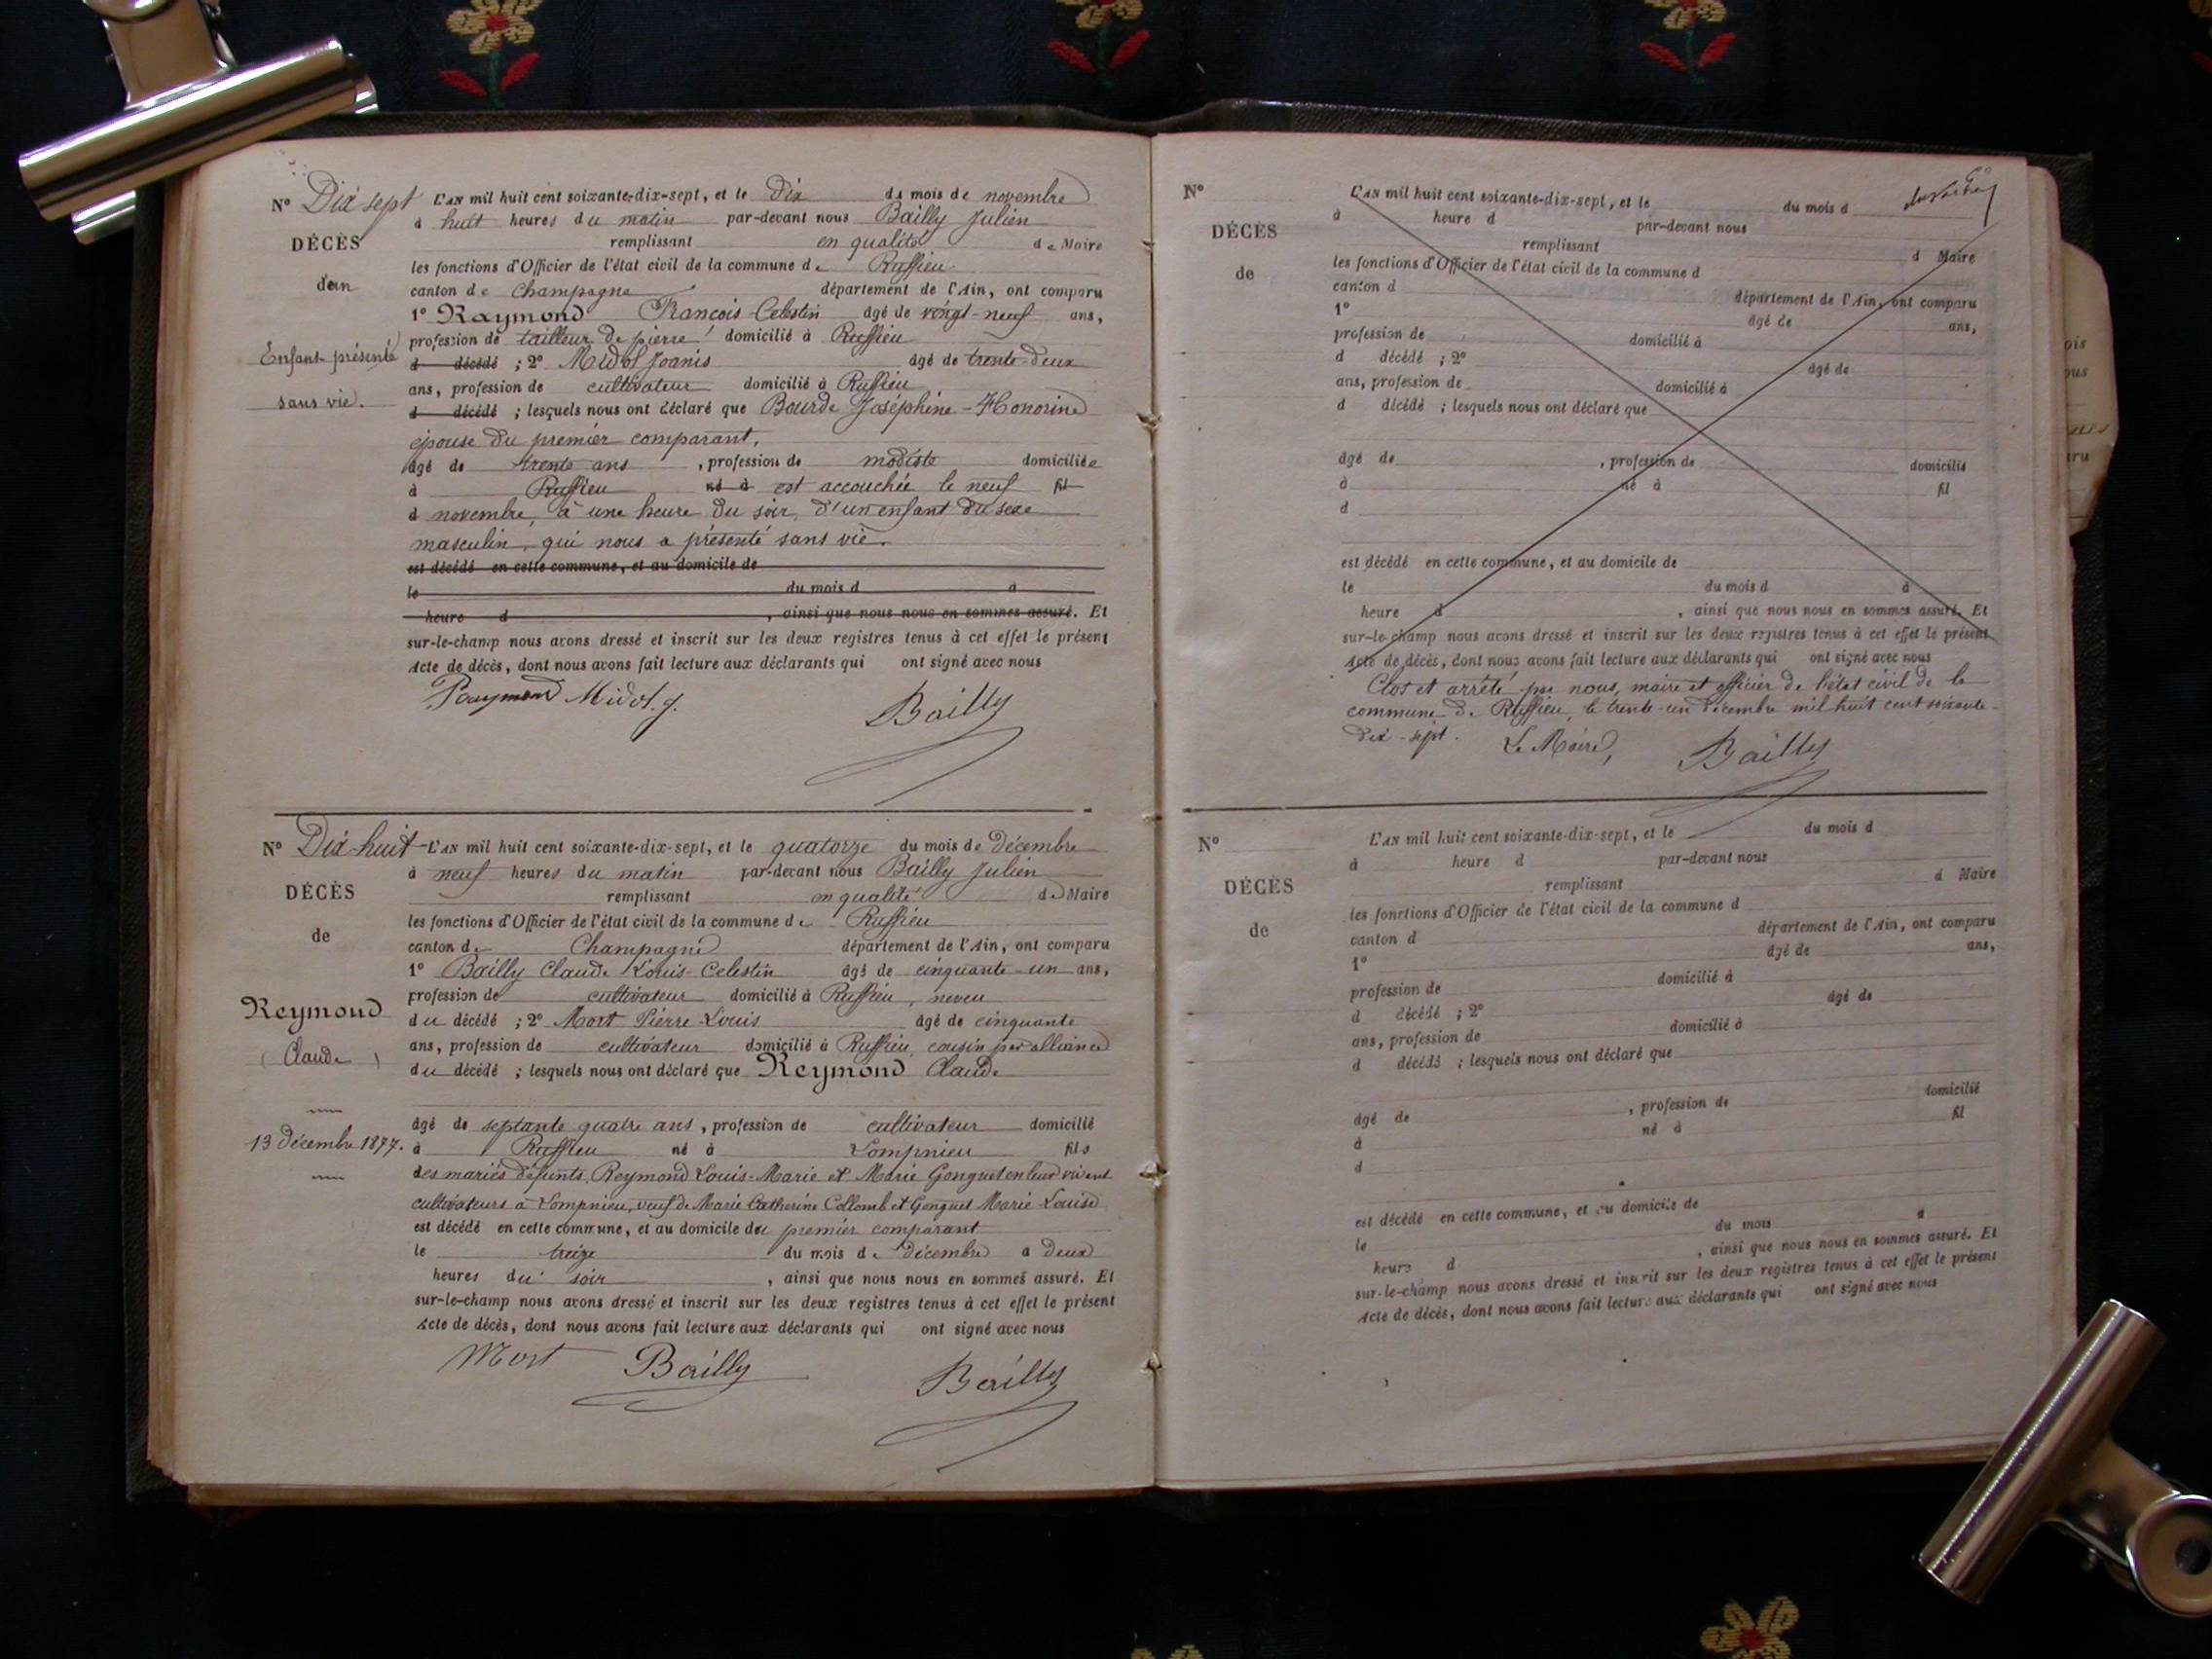 N° Dix sept L'AN mil huit cent soixante-dix-sept, et le dix du mois de novembre
à huit heures du matin par-devant nous Bailly Julien
DÉCÈS
remplissant en qualité de Maire
les fonctions d'Officier de l'état civil de la commune de Ruffieu
d'un
canton de Champagne département de l'Ain, ont comparu
1° Raymond François-Celestin âgé de vingt-neuf ans,
profession de tailleur de pierre domicilié à Ruffieu
Enfant présenté
sans vie.
d décédé ; 2° Midol Joanis âgé de trente-deux
ans, profession de cultivateur domicilié à Ruffieu
d décédé ; lesquels nous ont déclaré que Bourde Joséphine-Honorine
épouse du premier comparant,
âgé de trente ans, profession de modiste domiciliée
à Ruffieu né à est accouchée le neuf fil
d novembre, à une heure du soir, d'un enfant du sexe
masculin, qui nous a présenté sans vie.
est décédé en cette commune, et au domicile de
le du mois d à
heure d , ainsi que nous nous en sommes assuré. Et
sur-le-champ nous avons dressé et inscrit sur les deux registres tenus à cet effet le présent
Acte de décès, dont nous avons fait lecture aux déclarants qui ont signé avec nous
Raymond Midol. j. Bailly
N° Dix-huit L'AN mil huit cent soixante-dix-sept, et le quatorze du mois de décembre
à neuf heures du matin par-devant nous Bailly Julien
DÉCÈS
remplissant en qualité de Maire
les fonctions d'Officier de l'état civil de la commune de Ruffieu
de
canton de Champagne département de l'Ain, ont comparu
1° Bailly Claude Louis-Celestin âgé de cinquante-un ans,
profession de cultivateur domicilié à Ruffieu, neveu
Reymond
(Claude)
du décédé ; 2° Mort Pierre-Louis âgé de cinquante
ans, profession de cultivateur domicilié à Ruffieu, cousin par alliance
du décédé ; lesquels nous ont déclaré que Reymond Claude
âgé de septante quatre ans, profession de cultivateur domicilié
13 décembre 1877.
à Ruffieu né à Lompnieu fils
des mariés défunts, Reymond Louis-Marie et Marie Gonguet en leur vivant
cultivateurs à Lompnieu, veuf de Marie Catherine Collomb et Gonguet Marie-Louise
est décédé en cette commune, et au domicile du premier comparant
le treize du mois de décembre à deux
heures du soir , ainsi que nous nous en sommes assuré. Et
sur-le-champ nous avons dressé et inscrit sur les deux registres tenus à cet effet le présent
Acte de décès, dont nous avons fait lecture aux déclarants qui ont signé avec nous
Mort Bailly Bailly
N° L'AN mil huit cent soixante-dix-sept, et le du mois d
à heure d par-devant nous
DÉCÈS
remplissant d Maire
les fonctions d'Officier de l'état civil de la commune d
de
canton d département de l'Ain, ont comparu
1° âgé de ans,
profession de domicilié à
d décédé ; 2° âgé de
ans, profession de domicilié à
d décédé ; lesquels nous ont déclaré que
âgé de , profession de domicilié
à né à fil
d
est décédé en cette commune, et au domicile de
le du mois d à
heure d , ainsi que nous nous en sommes assuré. Et
sur-le-champ nous avons dressé et inscrit sur les deux registres tenus à cet effet le présent
Acte de décès, dont nous avons fait lecture aux déclarants qui ont signé avec nous
Clos et arrêté par nous, maire et officier de l'état civil de la
commune de Ruffieu, le trente-un décembre mil huit cent soixante-
dix-sept. Le Maire, Bailly
N° L'AN mil huit cent soixante-dix-sept, et le du mois d
à heure d par-devant nous
DÉCÈS
remplissant d Maire
les fonctions d'Officier de l'état civil de la commune d
de
canton d département de l'Ain, ont comparu
1° âgé de ans,
profession de domicilié à
d décédé ; 2° âgé de
ans, profession de domicilié à
d décédé ; lesquels nous ont déclaré que
âgé de , profession de domicilié
à né à fil
d
est décédé en cette commune, et au domicile de
le du mois à
heure d , ainsi que nous nous en sommes assuré. Et
sur-le-champ nous avons dressé et inscrit sur les deux registres tenus à cet effet le présent
Acte de décès, dont nous avons fait lecture aux déclarants qui ont signé avec nous